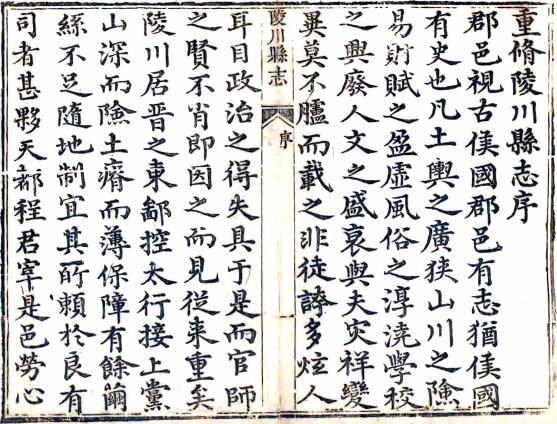 重脩陵川縣志序
郡邑視古侯國郡邑有志猶侯國
有史也凡土輿之廣狹山川之險
易財賦之盈虛風俗之淳澆學校
之興廢人文之盛衰與夫灾祥變
異莫不臚而載之非徒誇多炫人
陵川縣志
序
耳目政治之得失具于是而官師
之賢不肖即因之而見從來重矣
陵川居晉之東鄙控太行接上黨
山深而險土瘠而薄保障有餘繭
絲不足隨地制宜其所賴於良有
司者甚夥天都程君宰是邑勞心